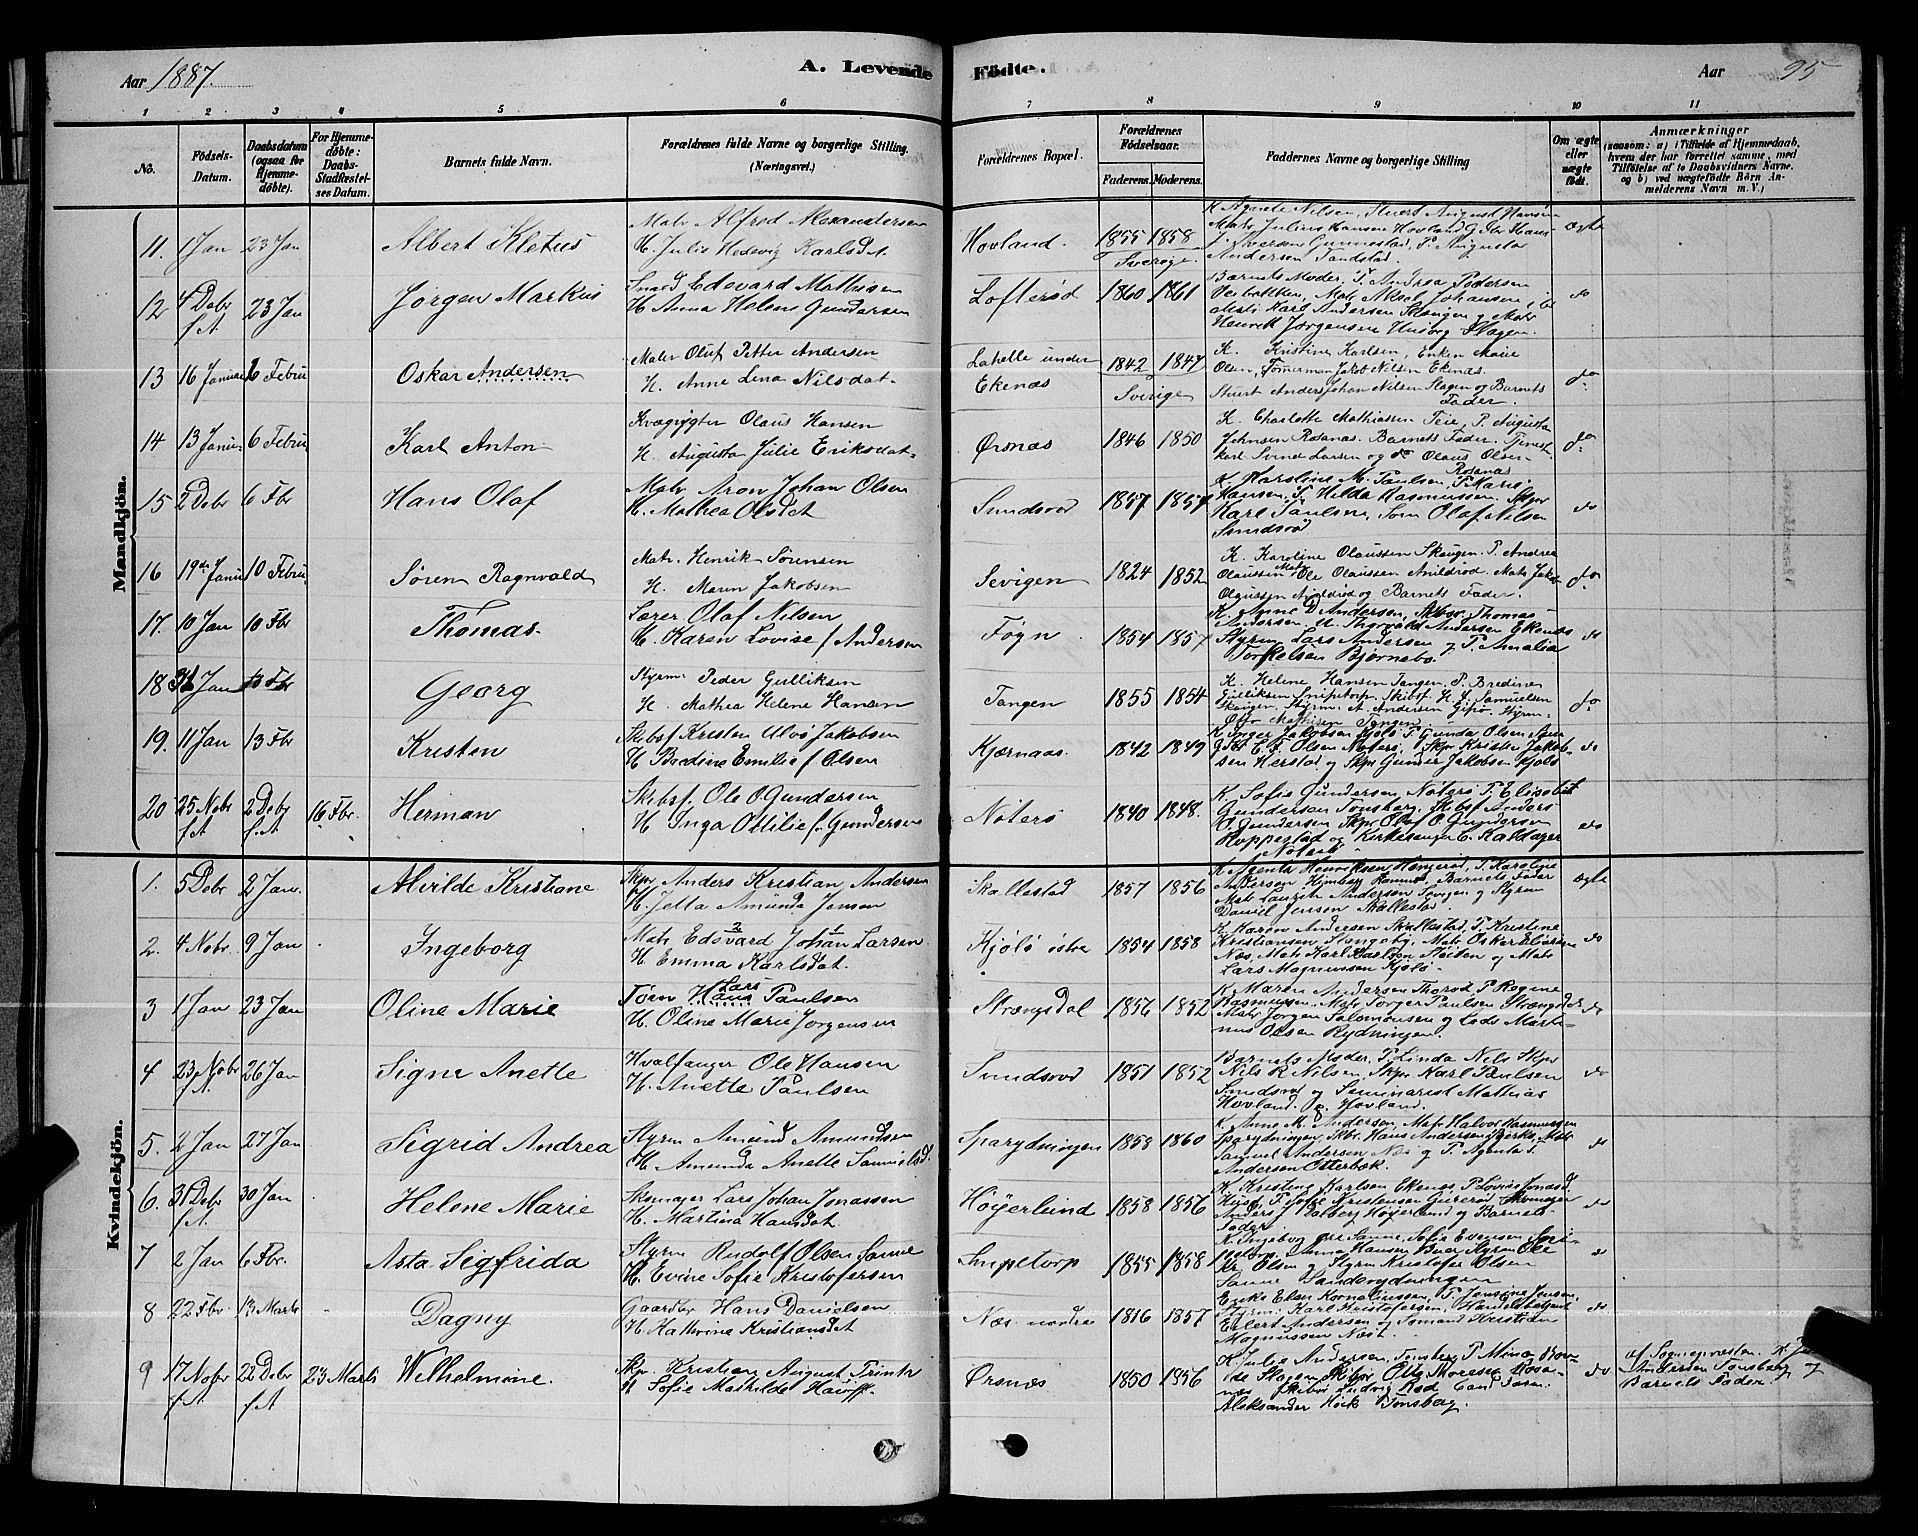 Aar 1887.
A. Levende Födte.
Aar 95
1 2 3 4 5 6 7 8 9 10 11
No.
Födsels-Datum.
Daabsdatum (ogsaa for Hjemmedøbte).
For Hjemmedøbte: Daabs-Stadfæstelses Datum.
Barnets fulde Navn.
Forældrenes fulde Navne og borgerlige Stilling (Næringsvei.)
Forældrenes Bopæl.
Forældrenes Födselsaar.
Faderens. Moderens.
Faddernes Navne og borgerlige Stilling
Om ægte eller uægte født.
Anmærkninger
(saasom: a) i Tilfælde af Hjemmedaab, hvem der har forrettet samme, med Tilføielse af to Daabsvidners Navne, og b) ved uægtefödte Börn Anmelderens Navn m. V.)
Mandkjön.
11. 1 Jan 23 Jan Albert Kletus
Matr Alfred Alexandersen
H. Julie Hedevig Karlsdt.
Hovland. 1855 1858 Sverige.
K. Agnete Nilsen, Stuert August Hansen
Matr Julius Hansen Hovland
Andersen
ægte
12 4 Debr f.A 23 Jan Jörgen Markus
Smed Edevard Mathisen
H. Anna Helene Gundersen
Lofteröd 1860 1861
Barnets Moder, P. Andrea Pedersen
Matr Aksel Johansen
Karl Andersen Slangen g Matr
Henrik Jörgensen Husög Slagen
do
13 16 Januar 6 Febru Oskar Andersen
Matr Oluf Petter Andersen
H. Anne Lena Nilsdat.
Lahelle under Ekenæs 1842 1847 Sverige
K. Kristine Karlsen, Enken Maie
Olsen, Tömerman Jakob Nilsen Ekenæs.
Stuert Anders Johan Nilsen Slagen og Barnets
Fader.
do
14 13 Janu. 6 Febru Karl Anton
Kvægrygter Olaus Hansen
H. Augusta Julie Eriksdat.
Ørsnæs 1846 1850
K. Charlotte Mathiassen Teie, P. Augusta
Johnsen Rosanæs. Barnets Fader. Tjenest
karl Svend Larsen og do Olaus Olsen
Rosanæs
do
15 2 Debr 6 Fbr Hans Olaf
Matr Aron Johan Olsen
H. Mathea Olsdt
Sundsrød 1857 1857
K. Karoline M. Paulsen, P. Marie
Hansen, P. Hilda Rasmussen, Skpr
Karl Paulsen, Sem Olaf Nilsen
Sundsröd
do
16 19de Janu 10 Febru Sören Ragnvald
Matr. Henrik Sörensen
H. Maren Jakobsen
Sevigen 1824 1852
K. Karoline Olaussen Skaugen. P. Andrea
Olaussen Matr Ole Olaussen Arildröd. Matr Jakob
Olaussen Arildröd og Barnets Fader.
do
17. 10 Jan 10 Fbr Thomas.
Lærer Olaf Nilsen
H. Karen Lovise f Andersen
Föyn 1854 1857
K. Anne D Andersen, Skbsr Thomas
Andersen, U. Thorvald Andersen Ekenæs
Styrm Lars Andersen g P. Amalia
Torkelsen Björnebo.
do
18 31 Jan 13 Fbr Georg
Styrm Peder Gulliksen
H. Mathea Helene Hansen
Tangen 1855 1854
K. Helene Hansen Tangen, P. Bredine
Gulliksen Snipetorp, Skibsf. H. J. Samuelsen
Skaugen, Styrm. A. Andersen Gipö. Styrm
Otto Mathisen Tangen.
do
19. 11 Jan 13 Fbr Kristen
Skibsf Kristen Ulvö Jakobsen
H Bredine Emilie f Olsen
Kjærnaas. 1842 1849
K Inger Jakobsen Kjölö P. Gunda Olsen
Gbr E. F. Olsen Nøterö, Skpr Kristen Jakobsen
Herstad g Skpr Gunder Jakobsen Kjölö
do
20 25 Nobr f.A 2 Debr f.A 16 Fbr. Herman
Skibsf. Ole O. Gundersen
H Inga Ottilie f. Gundersen
Nöterö 1840 1848.
K Sofie Gundersen, Nöterö P. Elisabet
Gundersen Tönsberg, Skibsf Anders
O. Gundersen Skpr Olaf O. Gundersen
Roppestad og Kirkesanger C. Kaldager
Nöterö
do
Kvindekjön.
1. 5 Debr 2 Jan. Alvilde Kristiane
Skpr Anders Kristian Andersen
H. Jetta Amunda Jensen
Skallestad 1857 1856
K Agente Henriksen, P. Karoline
Andersen Barnets Fader
Matr Lauritz Andersen Sevigen g Styrm
Daniel Jensen Skallestad.
ægte
2. 4 Nobr. 9 Jan Ingeborg
Matr Edsvard Johan Larsen
H. Emma Karlsdat.
Kjölö östre 1854 1858
K Karen Andersen Skallestad, P. Kristine
Kristiansen, Matr Oskar Eliasen
Næs, Matr Karl Karlsen Stöiden og Matr
Lars Magnussen Kjölö
do
3 1 Jan 23 Jan Oline Marie
Törn Hans Lars Paulsen
H. Oline Marie Jörgensen
Strængsdal 1856 1852
K Maren Andersen Thoröd, P Regine
Rasmussen, Matr Torger Paulsen Strængsdal
Matr Jörgen Salomonsen og Lods Martinus
Olsen Rydningen
do
4 23 Nobr f.A 26 Jan Signe Anette
Hvalfanger Ole Hansen
H. Anette Paulsen
Sundsrød 1851 1852
Barnets Moder, P. Linda Nils Skpr
Nils R Nilsen, Skpr Karl Paulsen
Sundsröd og Seminarist Mathias
Hovland. p. Hovland.
do
5. 2 Jan 27 Jan Sigrid Andrea
Styrm Amund Amundsen
H. Amunda Anette Samuelsd.
Sparydningen 1858 1860
K. Anne M. Andersen, Matr Halvor Rasmussen
Sparydningen, Skbr. Hans Andersen Bjerke, Matr
Samuel Andersen Næs g P. Agenta S.
Andersen Otterbæk.
do
6. 31 Debr f.A. 30 Jan Helene Marie
Skomager Lars Johan Jonassen
H. Martina Hansdat.
Höyerlund 1858 1856
K. Kristine Karlsen Ekenes, P Lovise Jonasd
Husö, P. Sofie Kristensen Gipöröd, Skomager
Anders J Dalberg Höyerlund g Barnets
Fader
do
7 2 Jan 6 Fbr. Asta Sigfrida
Styrm Rudolf Olsen Sanne
H. Evine Sofie Kristofersen
Snipetorp 1855 1858
K. Ingeborg Sanne, Sofie Evensen
Anna Hansen Buer Styrm Ole
Kr. Olsen g Styrm Kristofer Olsen
Sanne Sanderydningen
do
8 22 Fbr. 13 Marts Dagny
Gaardbr Hans Danielsen
H. Kathrine Kristiansdt
Næs nordre 1816 1857
Enke Elen Kornelinssen, P. Jensine Jensen,
Styrm. Karl Kristofersen, Handelsbetjent
Eilert Andersen g Sömand Kristian
Magnussen Næs.
do
9 17 Nobr f.A 22 Debr f.A 23 Marts Wilhelmine.
Skpr. Kristian August Trink
H Sofie Mathilde Hauff.
Ørsnæs 1850 1856
K. Julie Andersen, Tönsberg P. Mina
Slagen, Skpr Otto Moresco Rosanæs
Skibsr Ludvig Rød Cand Farm.
Aleksander Höck Tönsberg.
do
af Sognepresten.
Andersen Tönsberg og
Barnets Fader.